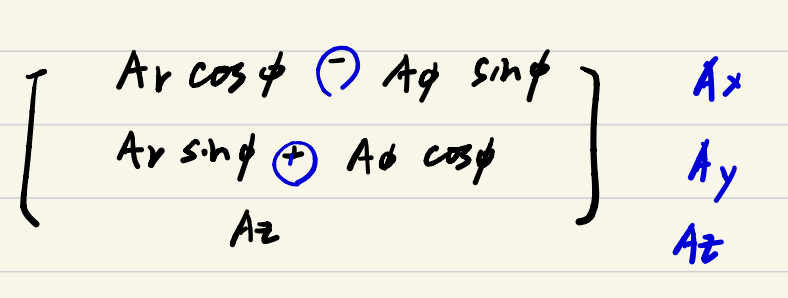 Ar cosϕ - Aϕ sinϕ Ax
Ar sinϕ + Aϕ cosϕ Ay
Az Az